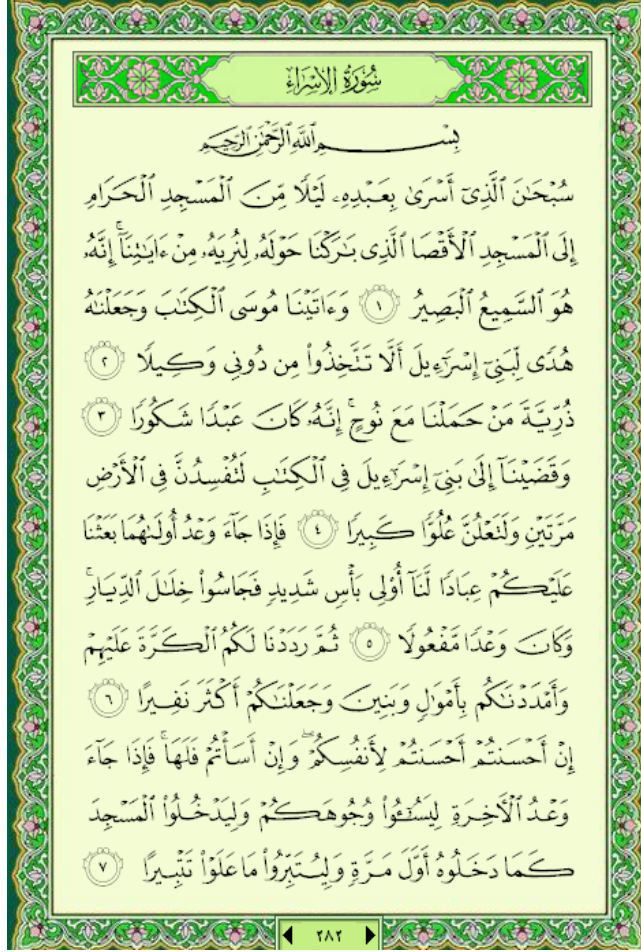 سُورَةُ الإِسْرَاءِ
بِسْمِ ٱللَّهِ ٱلرَّحْمَٰنِ ٱلرَّحِيمِ
سُبْحَٰنَ ٱلَّذِىٓ أَسْرَىٰ بِعَبْدِهِۦ لَيْلًا مِّنَ ٱلْمَسْجِدِ ٱلْحَرَامِ
إِلَى ٱلْمَسْجِدِ ٱلْأَقْصَا ٱلَّذِى بَٰرَكْنَا حَوْلَهُۥ لِنُرِيَهُۥ مِنْ ءَايَٰتِنَآ ۚ إِنَّهُۥ
هُوَ ٱلسَّمِيعُ ٱلْبَصِيرُ ١ وَءَاتَيْنَا مُوسَى ٱلْكِتَٰبَ وَجَعَلْنَٰهُ
هُدًى لِّبَنِىٓ إِسْرَٰٓءِيلَ أَلَّا تَتَّخِذُوا۟ مِن دُونِى وَكِيلًا ٢
ذُرِّيَّةَ مَنْ حَمَلْنَا مَعَ نُوحٍ ۚ إِنَّهُۥ كَانَ عَبْدًا شَكُورًا ٣
وَقَضَيْنَآ إِلَىٰ بَنِىٓ إِسْرَٰٓءِيلَ فِى ٱلْكِتَٰبِ لَتُفْسِدُنَّ فِى ٱلْأَرْضِ
مَرَّتَيْنِ وَلَتَعْلُنَّ عُلُوًّا كَبِيرًا ٤ فَإِذَا جَآءَ وَعْدُ أُولَىٰهُمَا بَعَثْنَا
عَلَيْكُمْ عِبَادًا لَّنَآ أُو۟لِى بَأْسٍ شَدِيدٍ فَجَاسُوا۟ خِلَٰلَ ٱلدِّيَارِ ۚ
وَكَانَ وَعْدًا مَّفْعُولًا ٥ ثُمَّ رَدَدْنَا لَكُمُ ٱلْكَرَّةَ عَلَيْهِمْ
وَأَمْدَدْنَٰكُم بِأَمْوَٰلٍ وَبَنِينَ وَجَعَلْنَٰكُمْ أَكْثَرَ نَفِيرًا ٦
إِنْ أَحْسَنتُمْ أَحْسَنتُمْ لِأَنفُسِكُمْ ۖ وَإِنْ أَسَأْتُمْ فَلَهَا ۚ فَإِذَا جَآءَ
وَعْدُ ٱلْءَاخِرَةِ لِيَسُۥٓـُٔوا۟ وُجُوهَكُمْ وَلِيَدْخُلُوا۟ ٱلْمَسْجِدَ
كَمَا دَخَلُوهُ أَوَّلَ مَرَّةٍ وَلِيُتَبِّرُوا۟ مَا عَلَوْا۟ تَتْبِيرًا ٧
٢٨٢